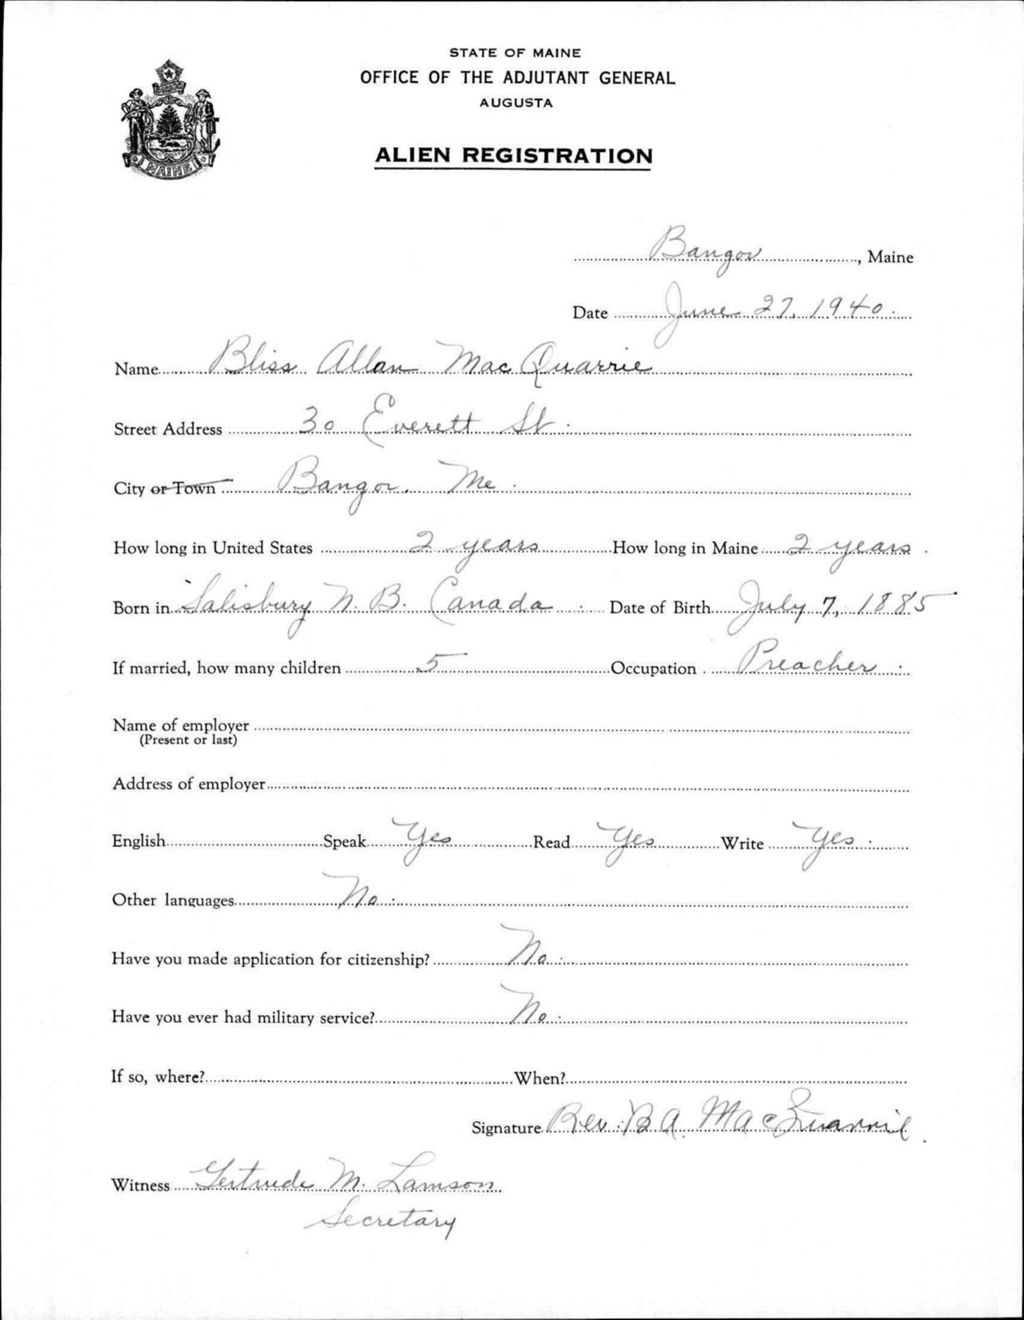 STATE OF MAINE
OFFICE OF THE ADJUTANT GENERAL
AUGUSTA
ALIEN REGISTRATION
MAINE
Bangor, Maine
Date June 27, 1940.
Name Bliss Allan MacQuarrie
Street Address 30 Everett St.
City or Town Bangor, Me.
How long in United States 2 years How long in Maine 2 years.
Born in Salisbury N. B. Canada. Date of Birth July 7, 1885
If married, how many children 5 Occupation Preacher.
Name of employer
(Present or last)
Address of employer
English Speak Yes Read Yes Write Yes.
Other languages No.
Have you made application for citizenship? No.
Have you ever had military service? No.
If so, where? When?
Signature Rev. B A. MacQuarrie.
Witness Gertrude M. Lamson
Secretary